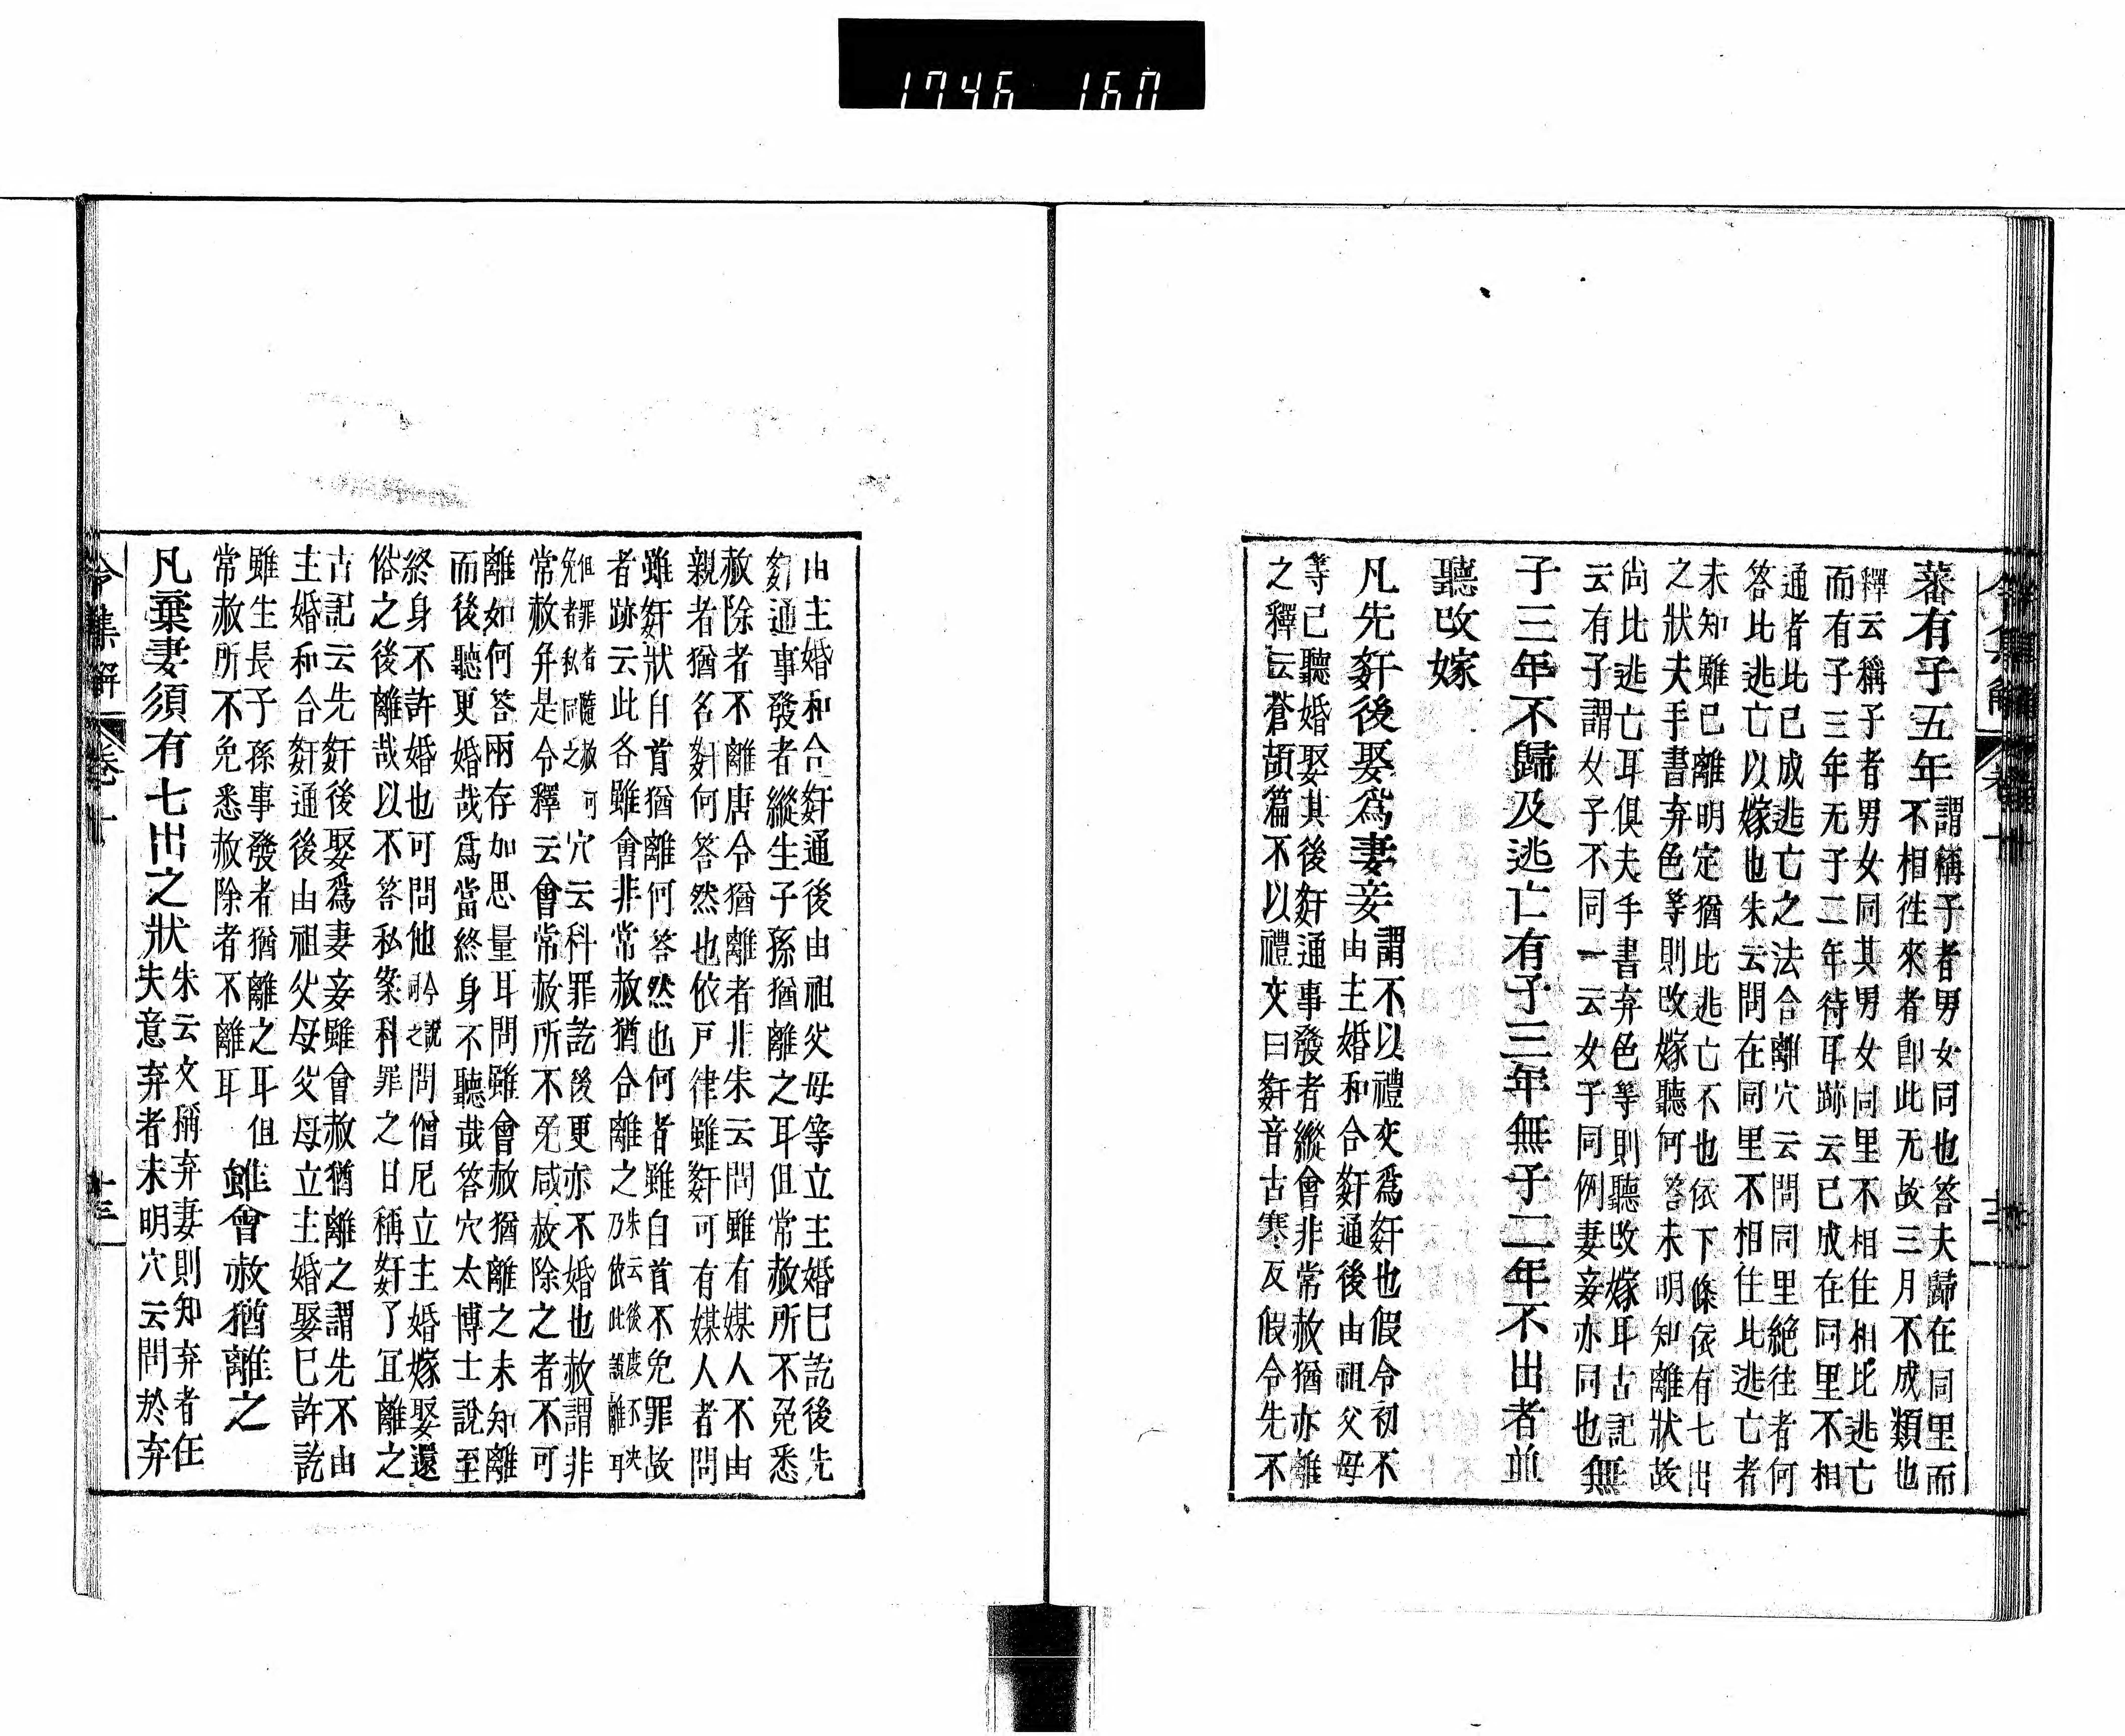 1746 160
蕃有子五年
謂稱子者男女同也答夫歸在同里而
不相徃來者卽此无故三月不成類也
釋云稱子者男女同其男女同里不相住相比逃亡
而有子三年无子二年待耳跡云已成在同里不相
通者比已成逃亡之法合離穴云問同里絶往者何
答比逃亡以嫁也朱云問在同里不相住比逃亡者
未知雖已離明定猶比逃亡不也依下條依有七出
之狀夫手書弃色等則改嫁聽何答未明知離狀故
尚比逃亡耳俱夫手書弃色等則聽改嫁耳古記
云有子謂女子不同一云女子同例妻妾亦同也無
子三年不歸及逃亡有子三年無子二年不出者並
聽改嫁
凡先姧後娶爲妻妾
謂不以禮交爲姧也假令初不
由主婚和合姧通後由祖父母
等已聽婚娶其後姧通事發者縱會非常赦猶亦離
之釋云蒼頡篇不以禮交曰姧音古寒反假令先不
由主婚和合姧通後由祖父母等立主婚已訖後先
姧通事發者縱生子孫猶離之耳但常赦所不免悉
赦除者不離唐令猶離者非朱云問雖有媒人不由
親者猶名姧何答然也依戸律雖姧可有媒人者問
雖姧狀自首猶離何答然也何者雖自首不免罪故
者跡云此各雖會非常赦猶合離之
朱云後度不
乃依此離耳
但罪者隨赦
免者私同之
穴云科罪訖後更亦不婚也赦謂非
常赦弁是令釋云會常赦所不免咸赦除之者不可
離如何答兩存加思量耳問雖會赦猶離之未知離
而後聽更婚哉爲當終身不聽哉答穴太博士說至
終身不許婚也可問他
問僧尼立主婚嫁娶還
俗之後離哉以不答私案科罪之日稱姧了冝離之
古記云先姧後娶爲妻妾雖會赦猶離之謂先不由
主婚和合姧通後由祖父母父母立主婚娶已許訖
雖生長子孫事發者猶離之耳但
常赦所不免悉赦除者不離耳
雖會赦猶離之
凡棄妻須有七出之狀
朱云文稱弃妻則知弃者任
失意弃者未明穴云問於弃
令集解
卷十
十三